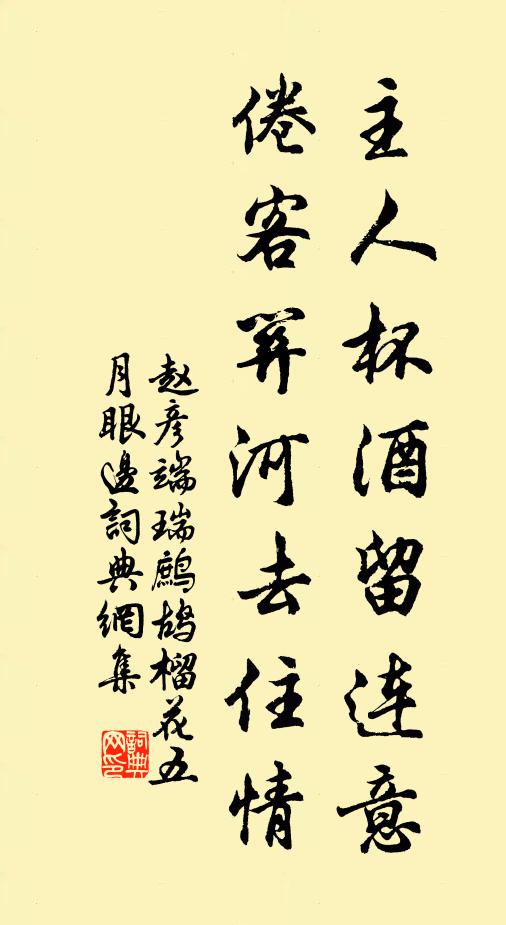 主人杯酒留连意
倦客关河去住情
赵彦端瑞鷓鴣榴花五
月眼邊詞典網集
詞典
网印